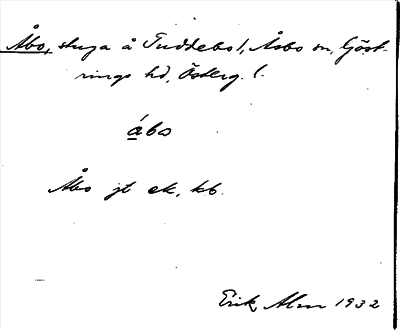 Åbo, stuga å Tuddebo(, Åsbo sn, Göst-
rings hd, Österg. l.
ábo
Åbo jt ek, kb.
Erik Alm 1932